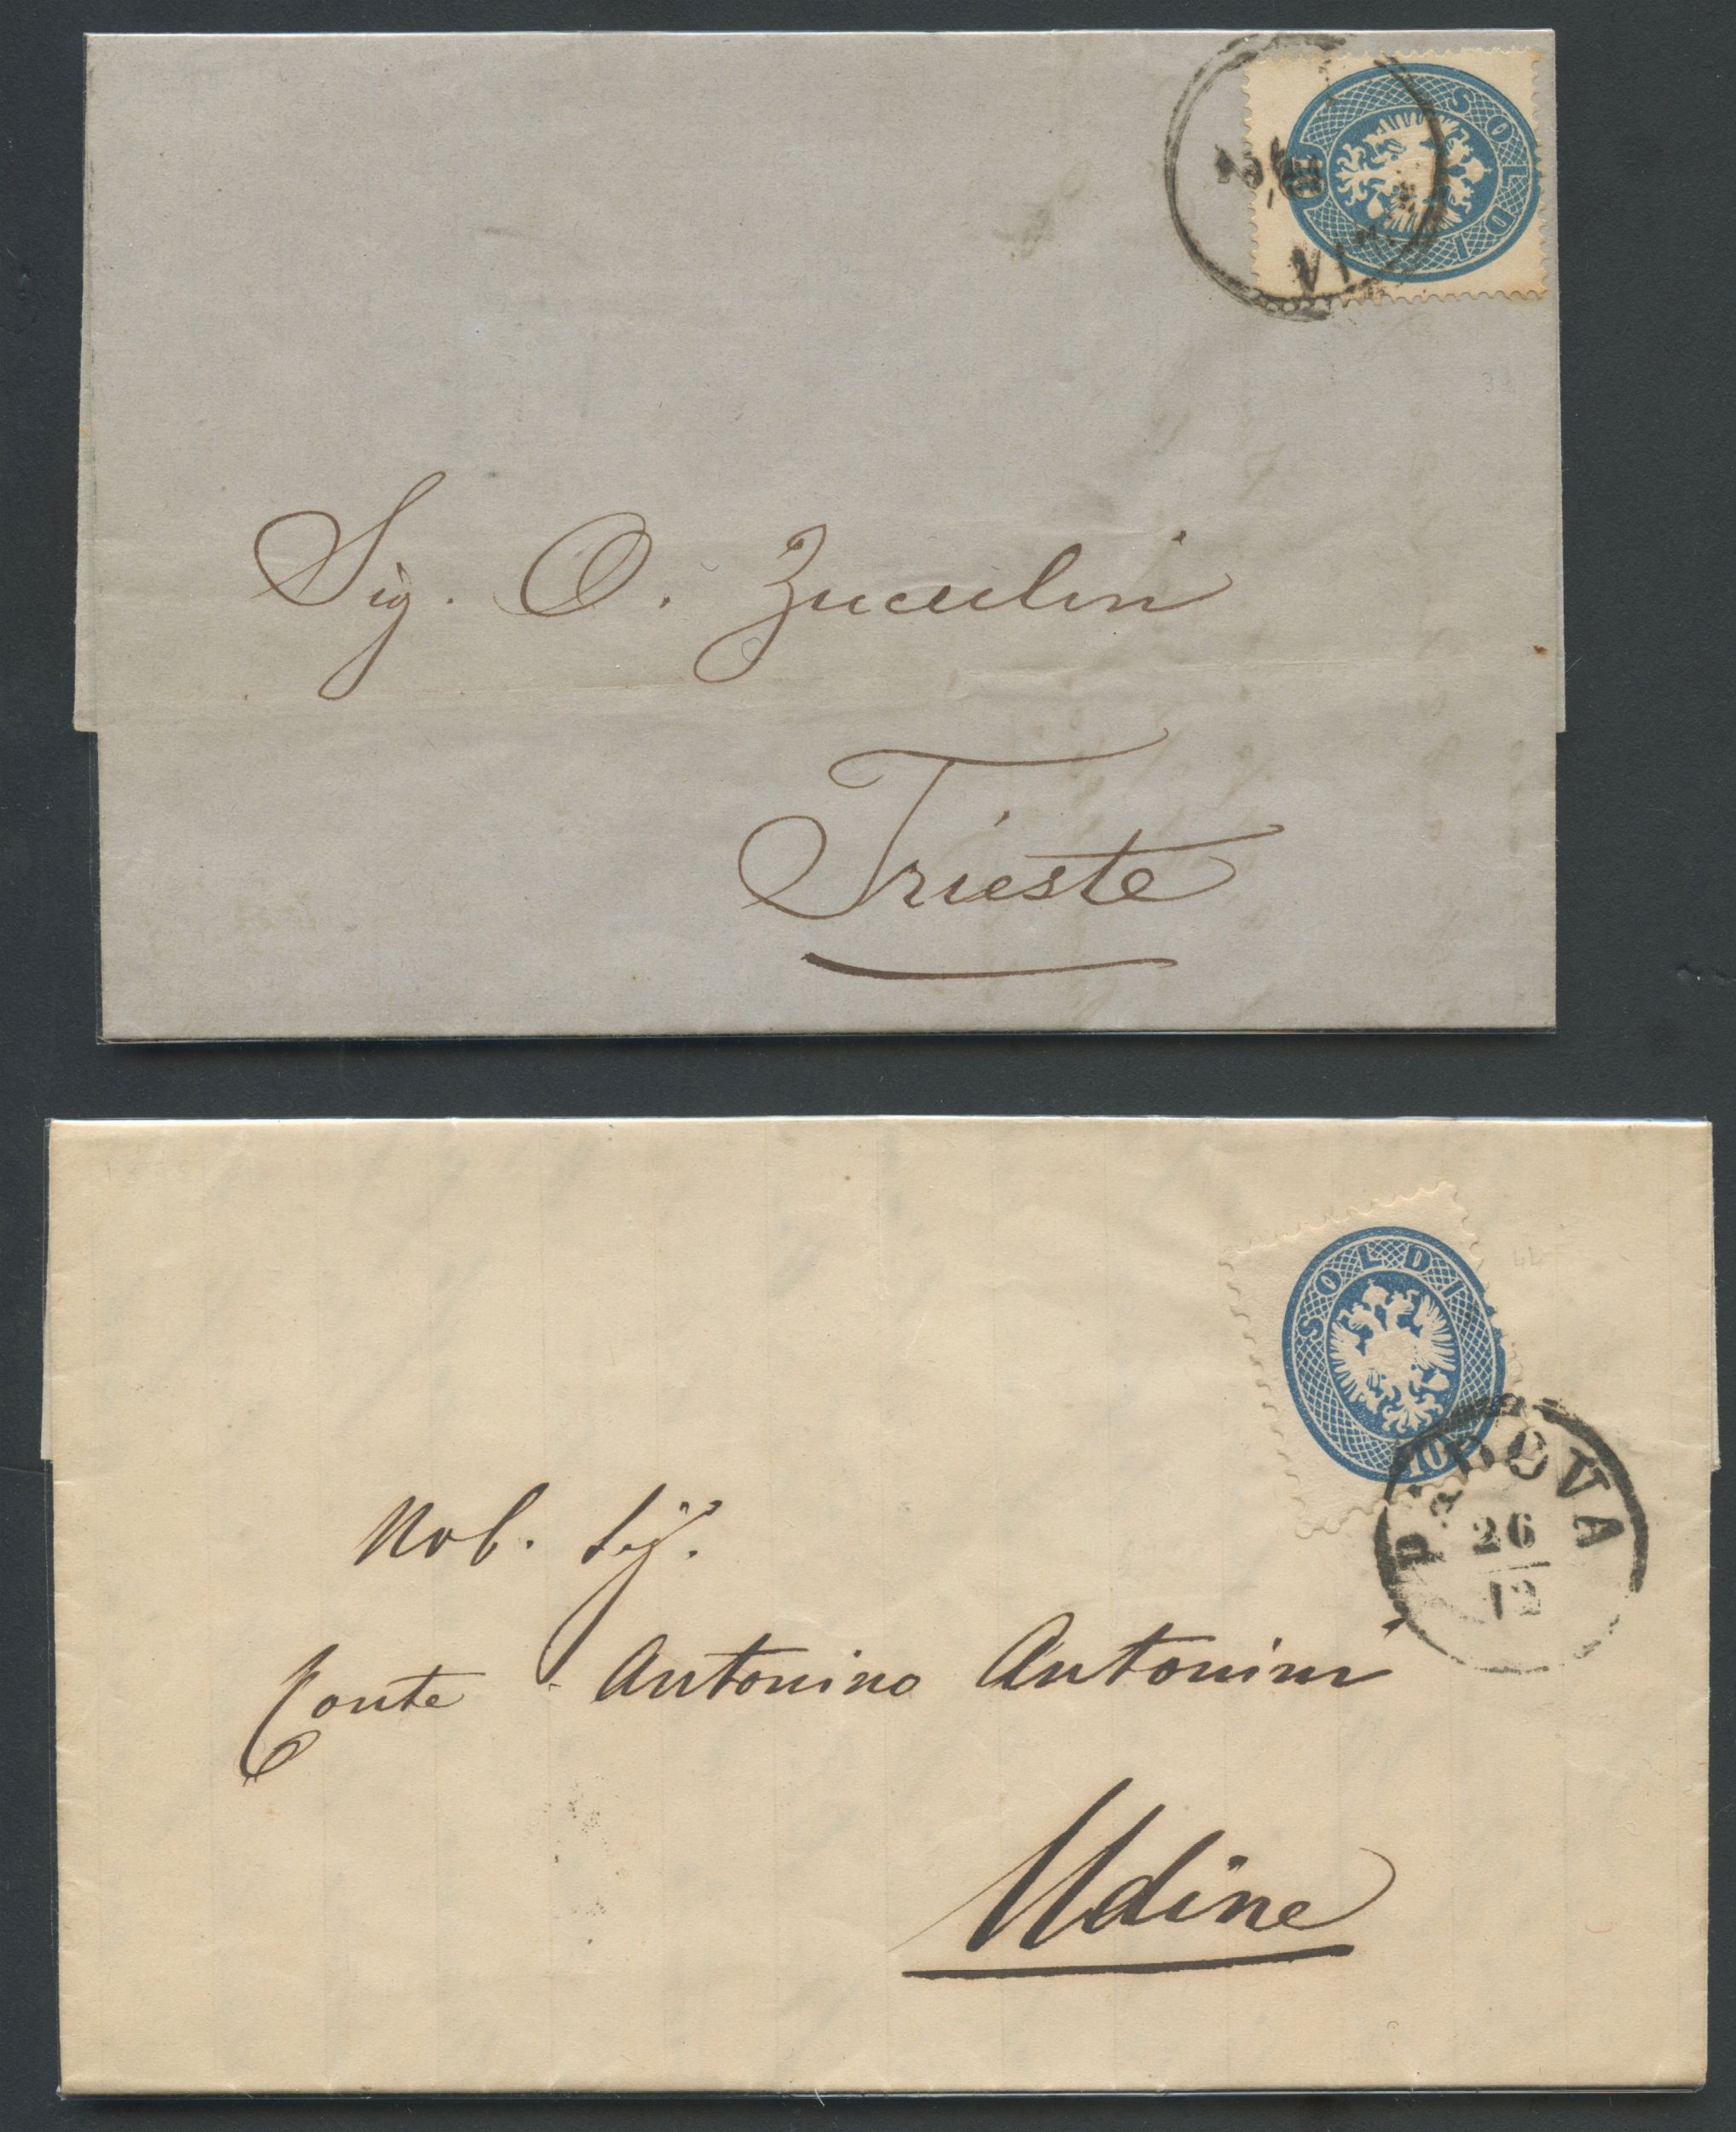 SOLDI
10
Sig. O. Zuculin
Trieste
SOLDI
10
PADOVA
26
12
Nob. Sig.
Conte Antonino Antonini
Udine